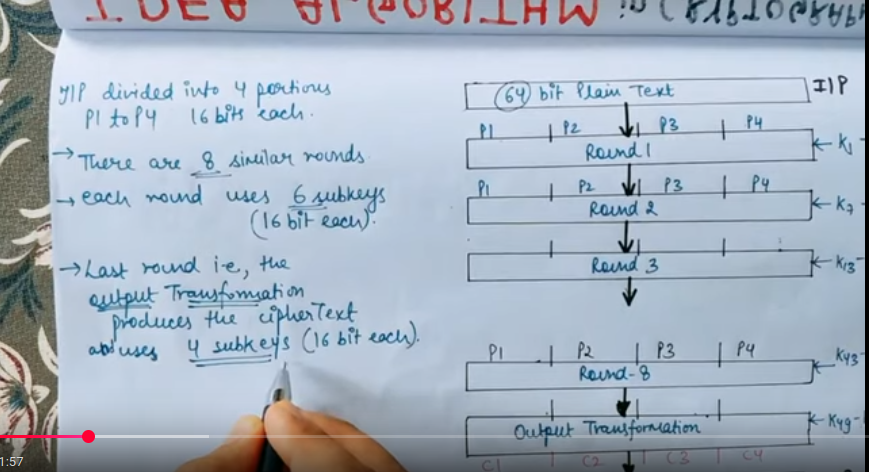 IDEA
I/P divided into 4 portions
P1 to P4 16 bits each.
→ There are 8 similar rounds.
→ each round uses 6 subkeys
(16 bit each).
→ Last round i.e, the
output Transformation
produces the cipherText
and uses 4 subkeys (16 bit each).
64 bit Plain Text I/P
P1 P2 P3 P4
Round 1 ← K1-
P1 P2 P3 P4
Round 2 ← K7-
Round 3 ← K13-
P1 P2 P3 P4
Round-8 ← K43-
Output Transformation ← K49-
C1 C2 C3 C4
1:57